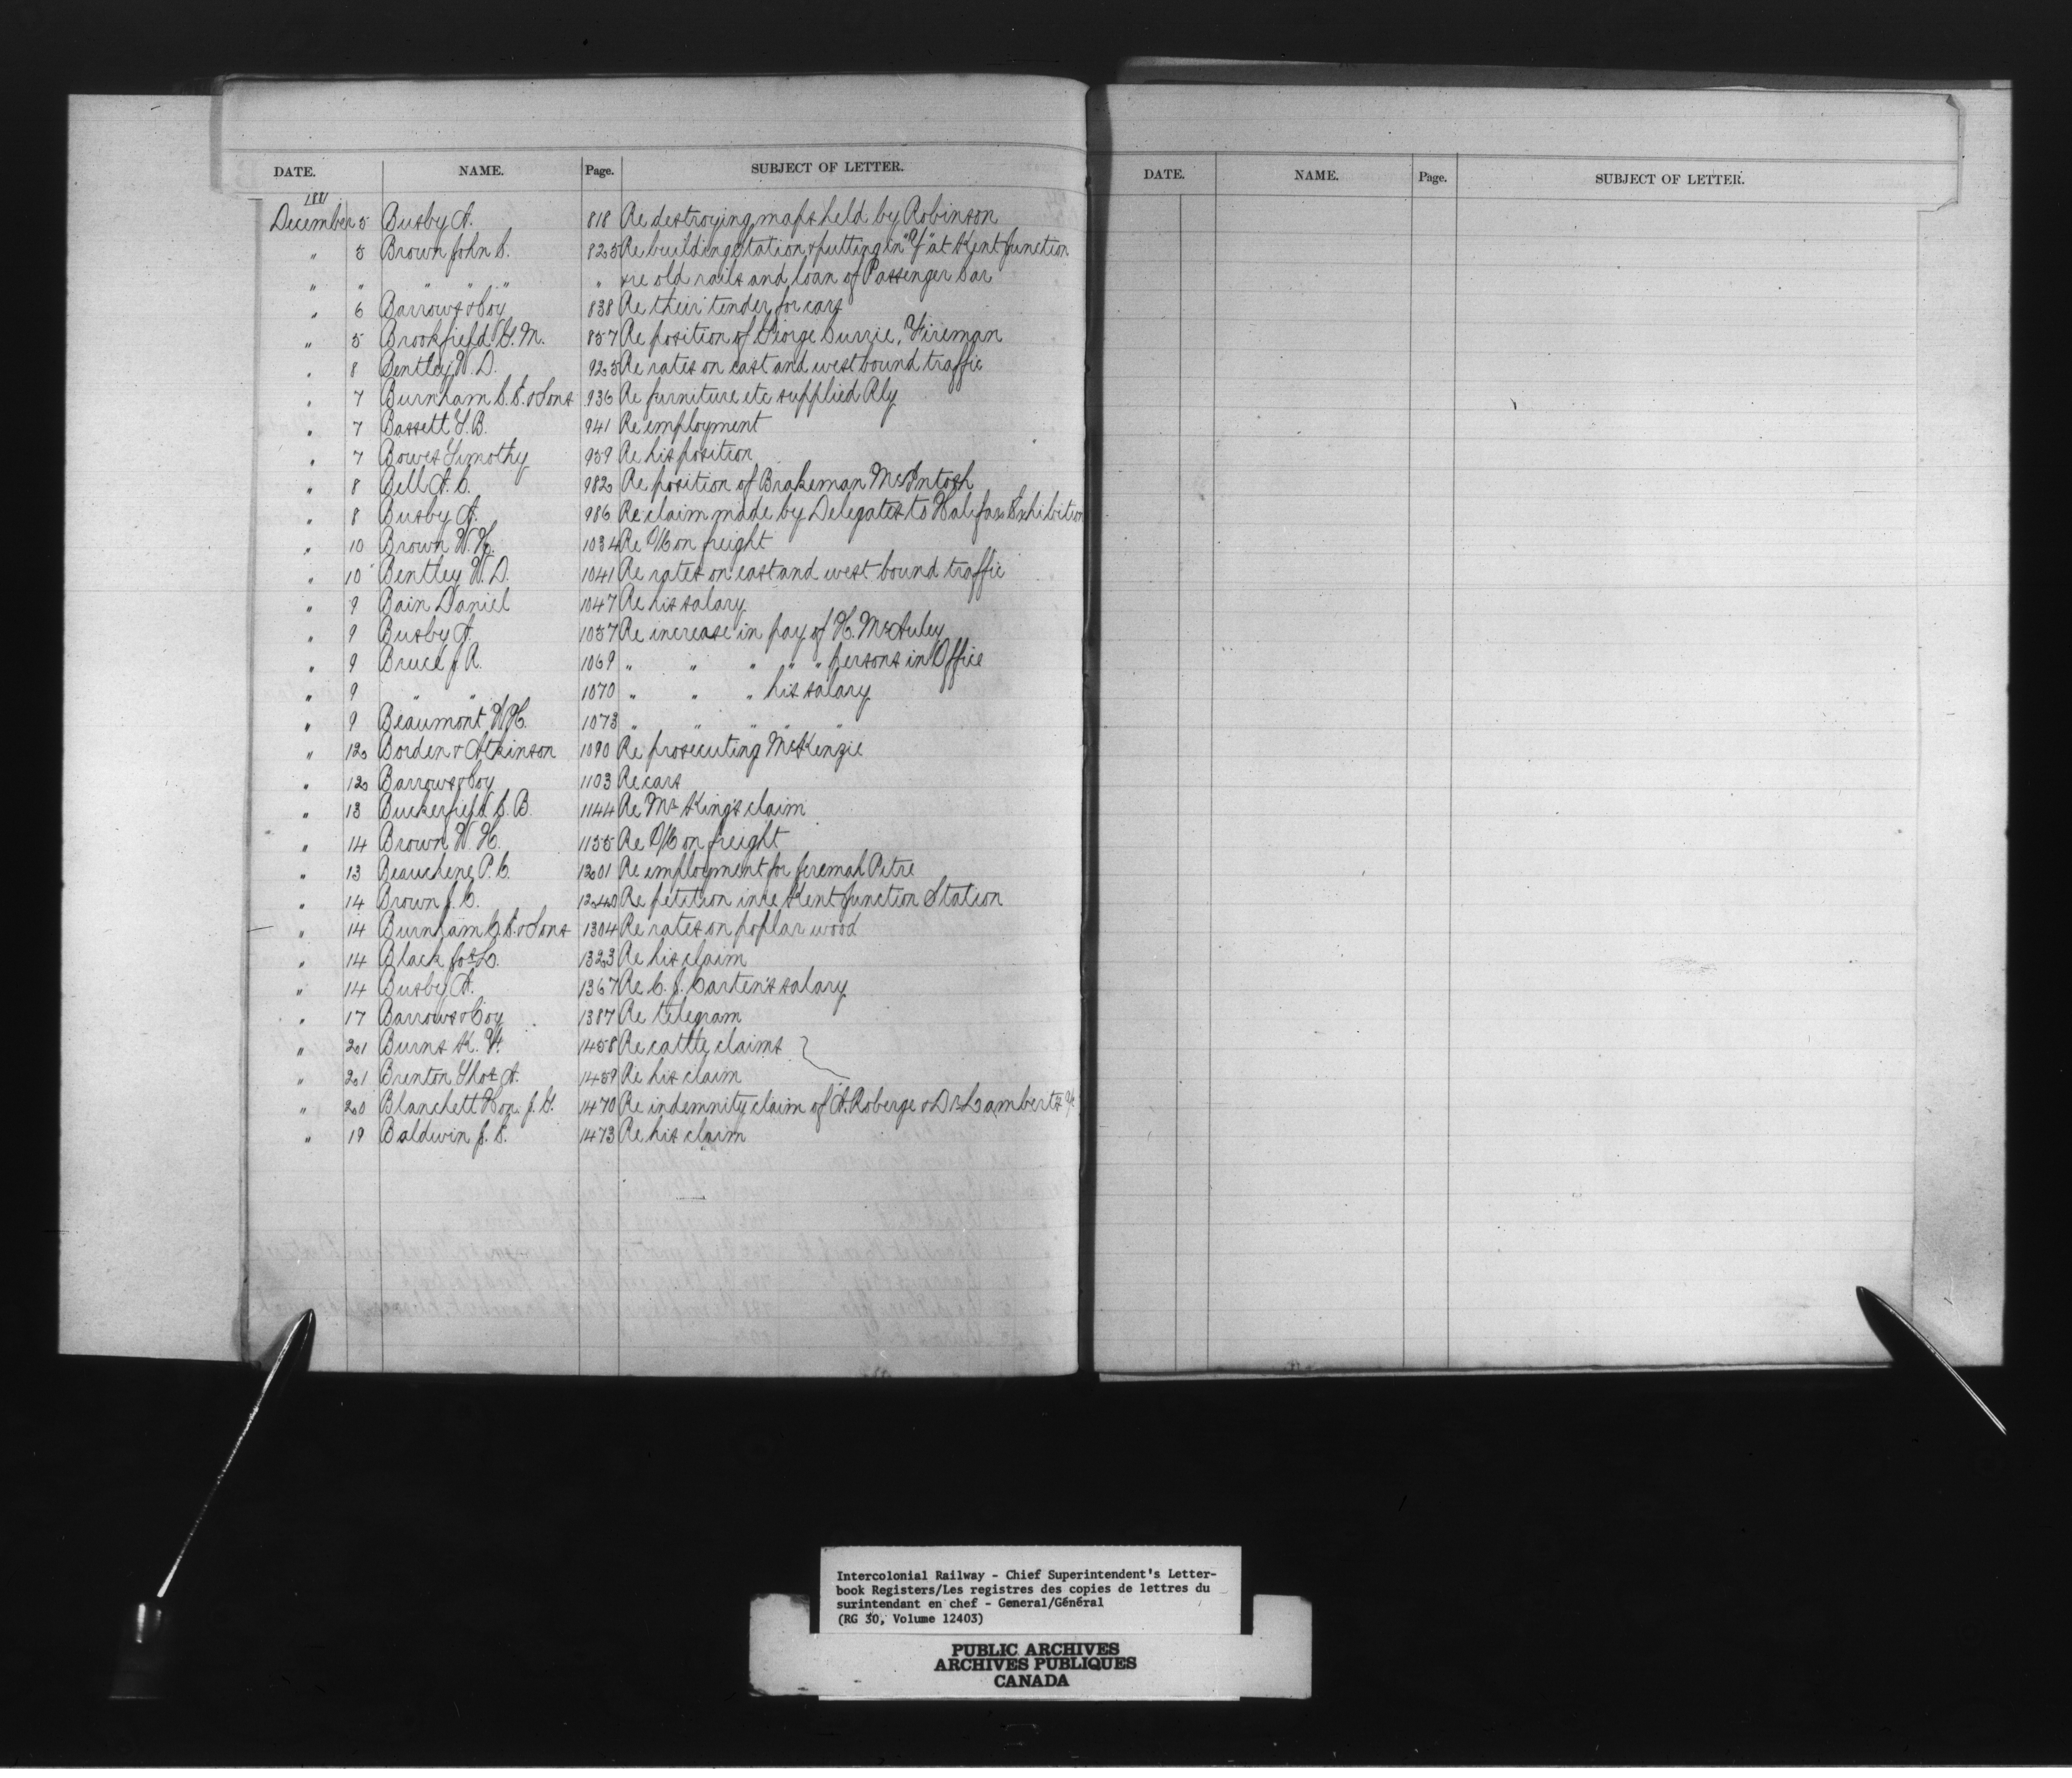 DATE. NAME. Page. SUBJECT OF LETTER.
1881
December 5 Busby A. 818 Re destroying maps held by Robinson
" 5 Brown John C. 825 Re building station & putting in "Y" at Kent Junction
" " " " " & re old rails and loan of Passenger Car
" 6 Barrows & Coy 838 Re their tender for cars
" 5 Brookfield S. M. 857 Re position of George Currie, Fireman
" 8 Bentley W. D. 925 Re rates on east and west bound traffic
" 7 Burnham C. E. & Sons 936 Re furniture etc supplied Rly
" 7 Bassett T. B. 941 Re employment
" 7 Bowes Timothy 959 Re his position
" 8 Bell A. C. 982 Re position of Brakeman McIntosh
" 8 Busby A. 986 Re claim made by Delegates to Halifax Exhibition
" 10 Brown W. H. 1034 Re O/C on freight
" 10 Bentley W. D. 1041 Re rates on east and west bound traffic
" 9 Bain Daniel 1047 Re his salary
" 9 Busby A. 1057 Re increase in pay of H. McAuley
" 9 Bruce J. R. 1069 " " " " " persons in Office
" 9 " " 1070 " " " his salary
" 9 Beaumont W. H. 1073 " " " " "
" 12 Borden & Atkinson 1090 Re prosecuting McKenzie
" 12 Barrows & Coy 1103 Re cars
" 13 Buckerfield S. B. 1144 Re Mr King's claim
" 14 Brown W. H. 1155 Re O/C on freight
" 13 Beauchene P. C. 1201 Re employment for Jeremah Pitre
" 14 Brown J. C. 1240 Re petition in re Kent Junction Station
" 14 Burnham C. E. & Sons 1304 Re rates on poplar wood
" 14 Black Jos L. 1323 Re his claim
" 14 Busby A. 1367 Re C. J. Carten's salary
" 17 Barrows & Coy 1387 Re telegram
" 21 Burns K. F. 1458 Re cattle claims
" 21 Brenton Thos A. 1459 Re his claim
" 20 Blanchett Hon. J. G. 1470 Re indemnity claim of A. Roberge & Dr Lamberts
" 19 Baldwin J. S. 1473 Re his claim
DATE. NAME. Page. SUBJECT OF LETTER.
Intercolonial Railway - Chief Superintendent's Letter-
book Registers/Les registres des copies de lettres du
surintendant en chef - General/Général
(RG 30, Volume 12403)
PUBLIC ARCHIVES
ARCHIVES PUBLIQUES
CANADA